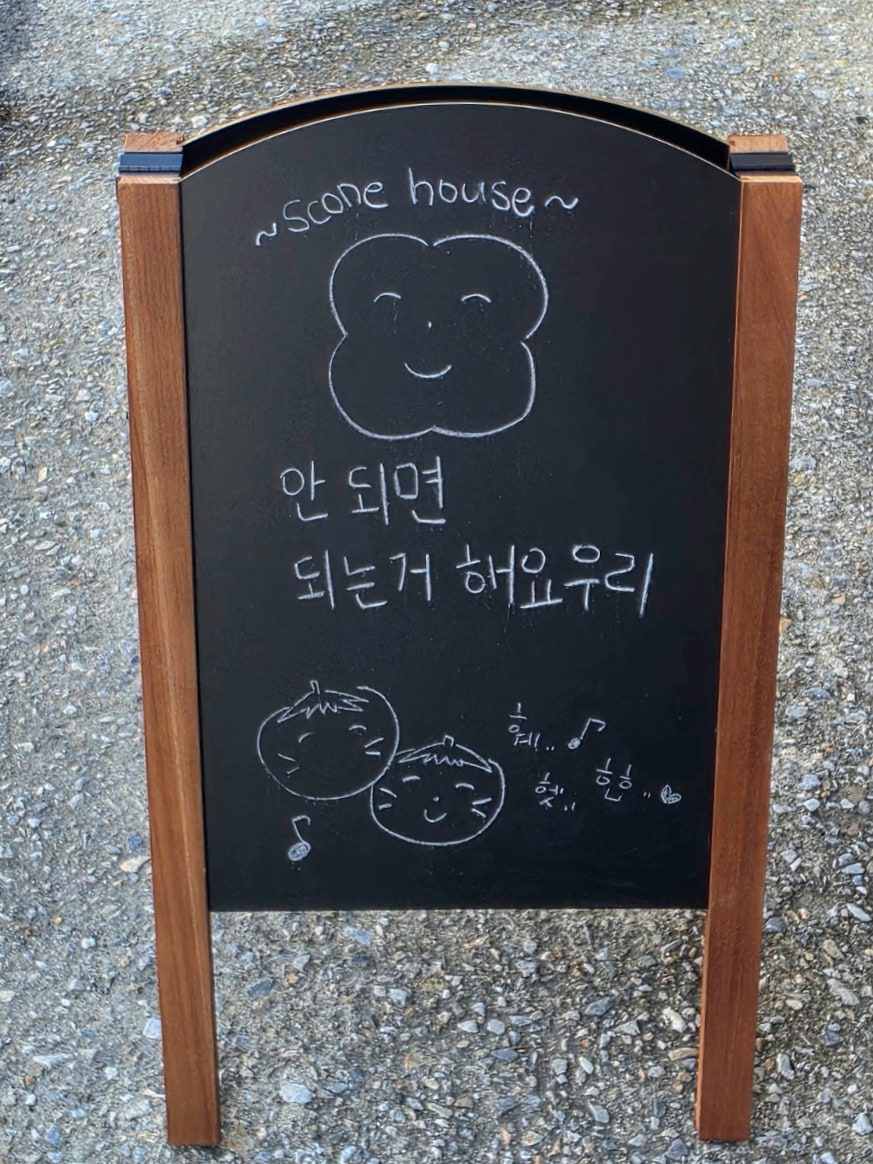 ~scone house~
안 되면
되는거 해요우리
훼.. ♪
헷.. 힌ㅎ..